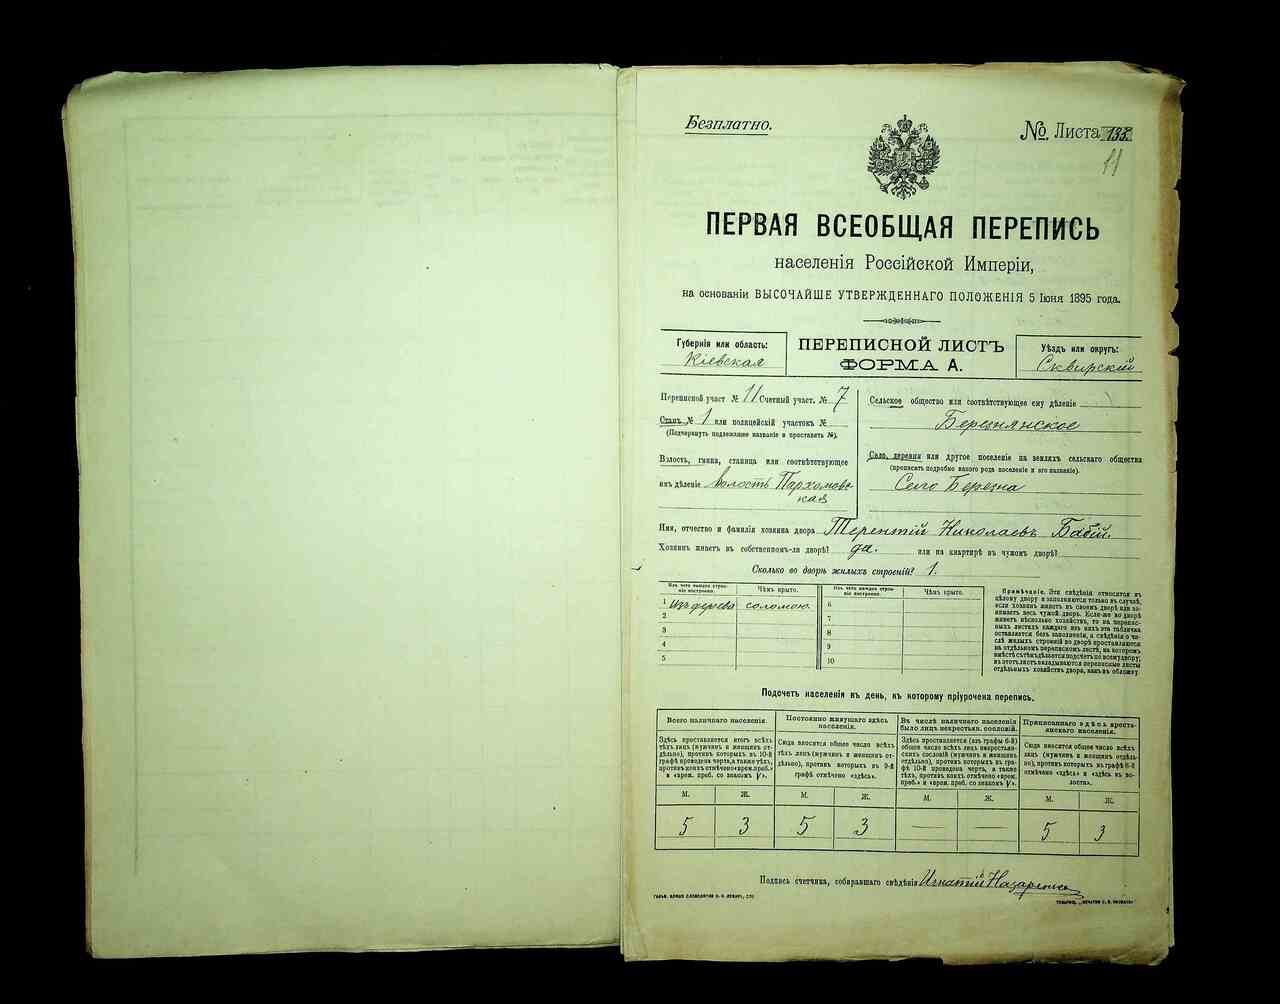 Безплатно.
№ Листа 133.
11
ПЕРВАЯ ВСЕОБЩАЯ ПЕРЕПИСЬ
населенія Россійской Имперіи,
на основаніи ВЫСОЧАЙШЕ УТВЕРЖДЕННАГО ПОЛОЖЕНІЯ 5 Іюня 1895 года.
Губернія или область:
Кіевская
ПЕРЕПИСНОЙ ЛИСТЪ
ФОРМА А.
Уѣздъ или округъ:
Сквирскій
Переписной участ № 11 Счетный участ. № 7
Станъ № 1 или полицейскій участокъ №
(Подчеркнуть подлежащее названіе и проставить №).
Волость, гмина, станица или соотвѣтствующее
имъ дѣленіе Волость Пархомов-
ская
Сельское общество или соотвѣтствующее ему дѣленіе
Березнянское
Село, деревня или другое поселеніе на земляхъ сельскаго общества
(прописать подробно какого рода поселеніе и его названіе).
Село Березна
Имя, отчество и фамилія хозяина двора Терентій Николаевъ Бабій.
Хозяинъ живетъ въ собственномъ-ли дворѣ? да. или на квартирѣ въ чужомъ дворѣ?
Сколько во дворѣ жилыхъ строеній? 1.
Изъ чего каждое строе-
ніе построено.
Чѣмъ крыто.
Изъ чего каждое строе-
ніе построено.
Чѣмъ крыто.
1 Изъ дерева соломою. 6
2 7
3 8
4 9
5 10
Примѣчаніе. Эти свѣдѣнія относятся къ
цѣлому двору и заполняются только въ случаѣ,
если хозяинъ живетъ въ своемъ дворѣ или за-
нимаетъ весь чужой дворъ. Если-же во дворѣ
живетъ нѣсколько хозяйствъ, то на перепис-
ныхъ листахъ каждаго изъ нихъ эта табличка
оставляется безъ заполненія, а свѣдѣнія о чи-
слѣ жилыхъ строеній во дворѣ проставляются
на отдѣльномъ переписномъ листѣ, на которомъ
вмѣстѣ съ тѣмъ дѣлается подсчетъ по всему двору;
въ этотъ листъ вкладываются переписные листы
отдѣльныхъ хозяйствъ двора, какъ въ обложку
Подсчетъ населенія въ день, къ которому пріурочена перепись.
Всего наличнаго населенія.
Здѣсь проставляется итогъ всѣхъ
тѣхъ лицъ (мужчинъ и женщинъ от-
дѣльно), противъ которыхъ въ 10-й
графѣ проведена черта, а также тѣхъ,
противъ коихъ отмѣчено «врем. преб.»
и «врем. преб. со знакомъ V».
Постоянно живущаго здѣсь
населенія.
Сюда вносится общее число всѣхъ
тѣхъ лицъ (мужчинъ и женщинъ от-
дѣльно), противъ которыхъ въ 9-й
графѣ отмѣчено «здѣсь».
Въ числѣ наличнаго населенія
было лицъ некрестьян. сословій.
Здѣсь проставляется (изъ графы 6-й)
общее число всѣхъ лицъ некрестьян-
скихъ сословій (мужчинъ и женщинъ
отдѣльно), противъ которыхъ въ
графѣ 10-й проведена черта, а также
тѣхъ, противъ коихъ отмѣчено «врем.
преб.» и «врем. преб. со знакомъ V».
Приписаннаго здѣсь кресть-
янскаго населенія.
Сюда вносится общее число всѣхъ
лицъ (мужчинъ и женщинъ отдѣль-
но), противъ которыхъ въ графѣ 8-й
отмѣчено «здѣсь» и «здѣсь въ во-
лости».
М. Ж. М. Ж. М. Ж. М. Ж.
5 3 5 3 — — 5 3
Подпись счетчика, собиравшаго свѣдѣнія Игнатій Назаренко